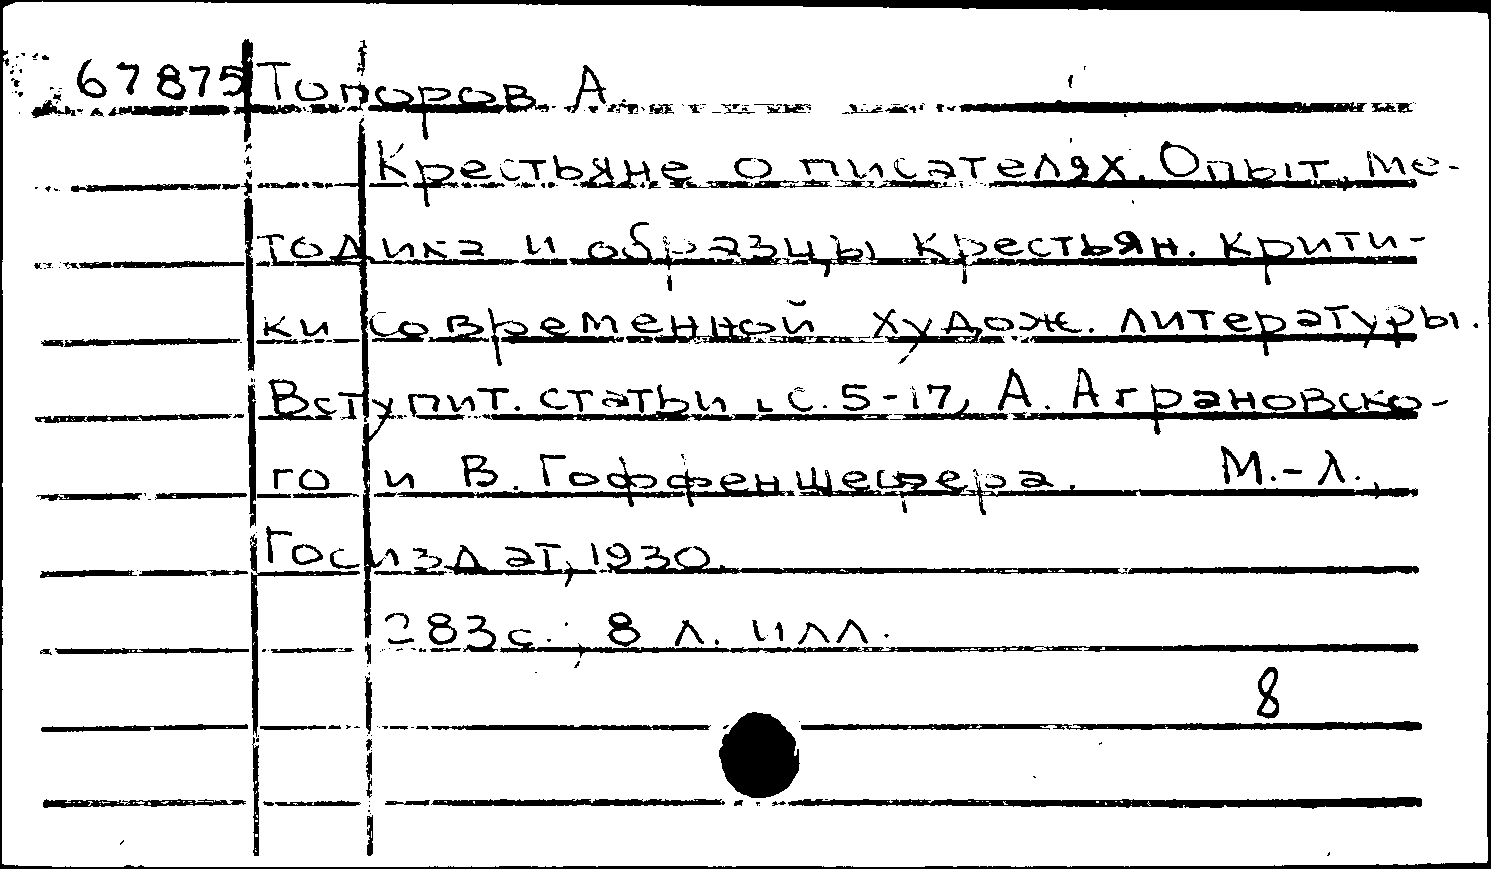 67875 Топоров А.
Крестьяне о писателях. Опыт, ме-
тодика и образцы крестьян. крити-
ки современной худож. литературы.
Вступит. статьи, с. 5-17, А. Аграновско-
го и В. Гоффеншефера. М.-Л.,
Госиздат, 1930.
283с.; 8 л. илл.
8